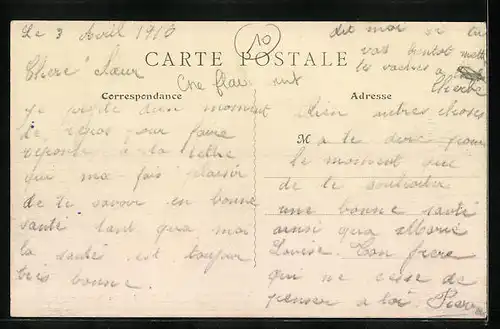 Le 3 Avril 1910
10
CARTE POSTALE
Correspondance
Adresse
M
Chère Sœur
je profite d'un moment
de repos pour faire
réponse à ta lettre
qui ma fais plaisir
de te savoir en bonne
santé tant qua moi
la santé est toujour
très bonne.
dit moi si tu
vas bentot mettre
les vaches a
l'herbe
Rien autres choses
a te dire pour
le moment que
de te souhaiter
une bonne santé
ainsi qua Marie
Louise. Ton frère
qui ne cesse de
penser a toi.